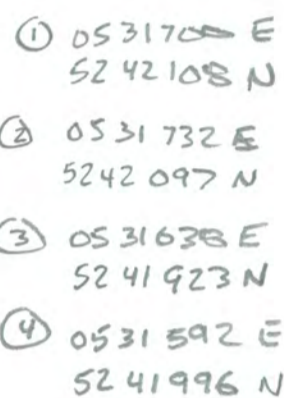 ① 0531700 E
5242108 N
② 0531732 E
5242097 N
③ 0531638 E
5241923 N
④ 0531592 E
5241996 N